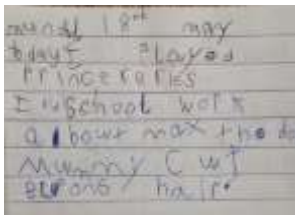 mundi 18th may
todays Played
Princeraries
I wschool work
a bowt max the do
Mummy Cut
hair.